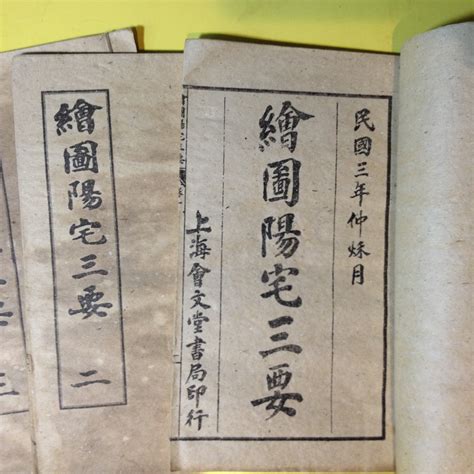 民國三年仲秌月
繪圖陽宅三要
上海會文堂書局印行
繪圖陽宅三要 二
三